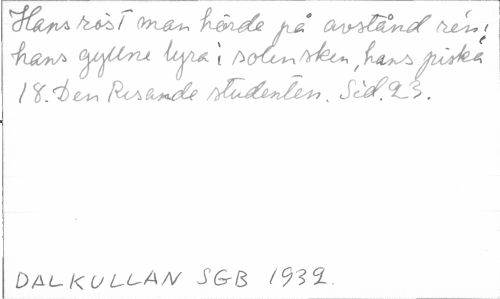 Hans röst man hörde på avstånd ren;
hans gyllne lyra i solensken, hans piska
18. Den Resande studenten. Sid. 23.
DALKULLAN SGB 1939.